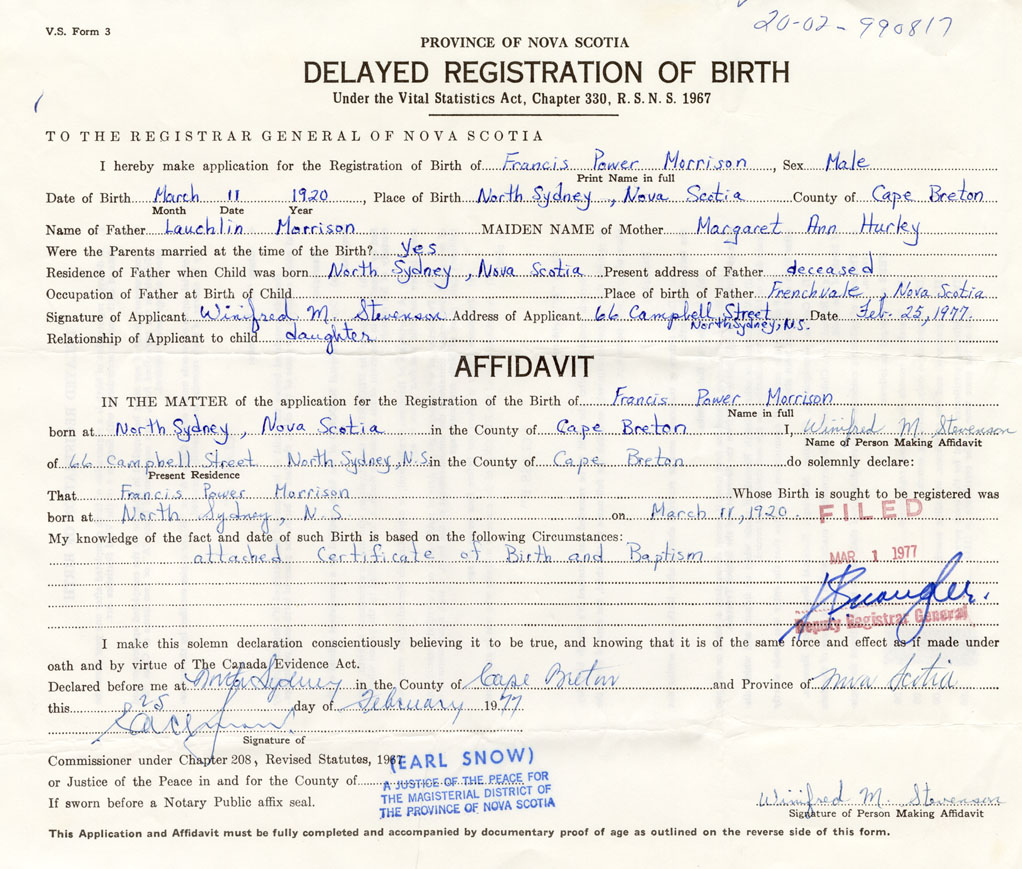 V.S. Form 3
20-02-990817
PROVINCE OF NOVA SCOTIA
DELAYED REGISTRATION OF BIRTH
Under the Vital Statistics Act, Chapter 330, R.S.N.S. 1967
TO THE REGISTRAR GENERAL OF NOVA SCOTIA
I hereby make application for the Registration of Birth of Francis Power Morrison, Sex Male
Print Name in full
Date of Birth March 11 1920, Place of Birth North Sydney, Nova Scotia County of Cape Breton
Month Date Year
Name of Father Lauchlin Morrison MAIDEN NAME of Mother Margaret Ann Hurley
Were the Parents married at the time of the Birth? Yes
Residence of Father when Child was born North Sydney, Nova Scotia Present address of Father deceased
Occupation of Father at Birth of Child Place of birth of Father Frenchvale, Nova Scotia
Signature of Applicant Winifred M. Stevenson Address of Applicant 66 Campbell Street Date Feb. 25, 1977.
North Sydney, N.S.
Relationship of Applicant to child daughter
AFFIDAVIT
IN THE MATTER of the application for the Registration of the Birth of Francis Power Morrison
Name in full
born at North Sydney, Nova Scotia in the County of Cape Breton I, Winifred M. Stevenson
Name of Person Making Affidavit
of 66 Campbell Street North Sydney, N.S. in the County of Cape Breton do solemnly declare:
Present Residence
That Francis Power Morrison Whose Birth is sought to be registered was
born at North Sydney, N.S. on March 11, 1920.
FILED
My knowledge of the fact and date of such Birth is based on the following Circumstances:
attached Certificate of Birth and Baptism
MAR 1 1977
Deputy Registrar General
I make this solemn declaration conscientiously believing it to be true, and knowing that it is of the same force and effect as if made under
oath and by virtue of The Canada Evidence Act.
Declared before me at North Sydney in the County of Cape Breton and Province of Nova Scotia
this 25 day of February 1977
Signature of
Commissioner under Chapter 208, Revised Statutes, 1967
(EARL SNOW)
or Justice of the Peace in and for the County of
A JUSTICE OF THE PEACE FOR
THE MAGISTERIAL DISTRICT OF
THE PROVINCE OF NOVA SCOTIA
If sworn before a Notary Public affix seal.
Winifred M. Stevenson
Signature of Person Making Affidavit
This Application and Affidavit must be fully completed and accompanied by documentary proof of age as outlined on the reverse side of this form.